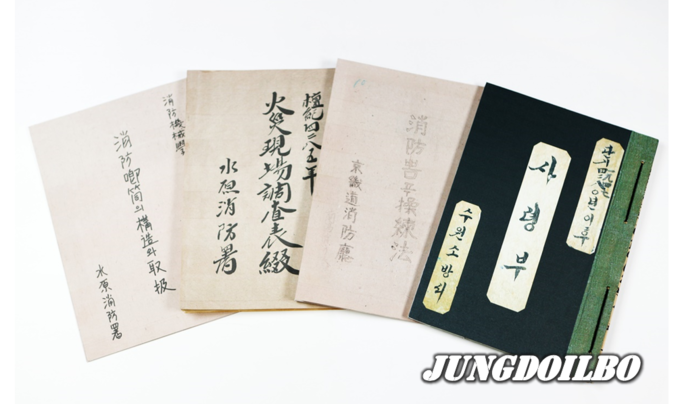 消防機械學
消防喞筒의 構造와 取扱
水原消防署
檀紀四二八五年
火災現場調査表綴
水原消防署
消防署士操練法
京畿道消防廳
사령부
수원소방서
JUNGDOILBO